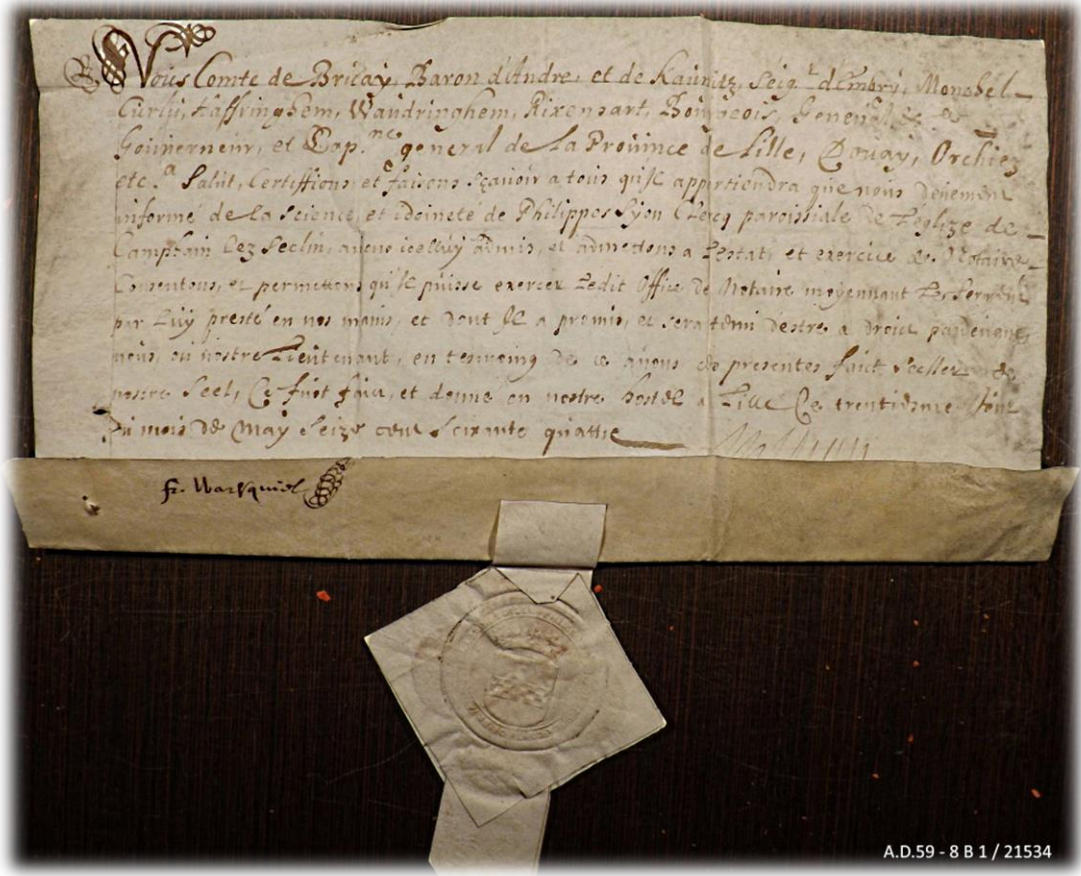 Nous Comte de Bruay, Baron d'Andre, et de Kaunitz, Seigr d'embri, Monobel
Curgi, haffringhem, Waudringhem, Rixensart, Bourgeois, General
Gouverneur, et Capne general de La Province de Lille, Douay, Orchiez
etc.a Salut, Certiffions, et faisons sçavoir a tous qu'Il appertiendra que nous deuement
informé de La science, et idoineté de Philippes Lyon Clercq paroissiale de L'eglize de
Camphain Lez Seclin, auons icelluy admis, et admettons a L'estat, et exercice de Notaire
Consentons, et permettons qu'Il puisse exercer Ledit Office de Notaire moyennant Le Serment
par Luy presté en nos mains, et dont Il a promis, et sera tenu d'estre a droict pardeuant
nous, ou nostre Lieutenant, en tesmoing de ce auons ces presentes faict Seeller de
nostre Seel, Ce fust faict, et donné en nostre hostel a Lille Ce trentiesme Jour
Du mois de May Seize cent Soixante quattre
fr. Warquiel
A.D.59 - 8 B 1 / 21534